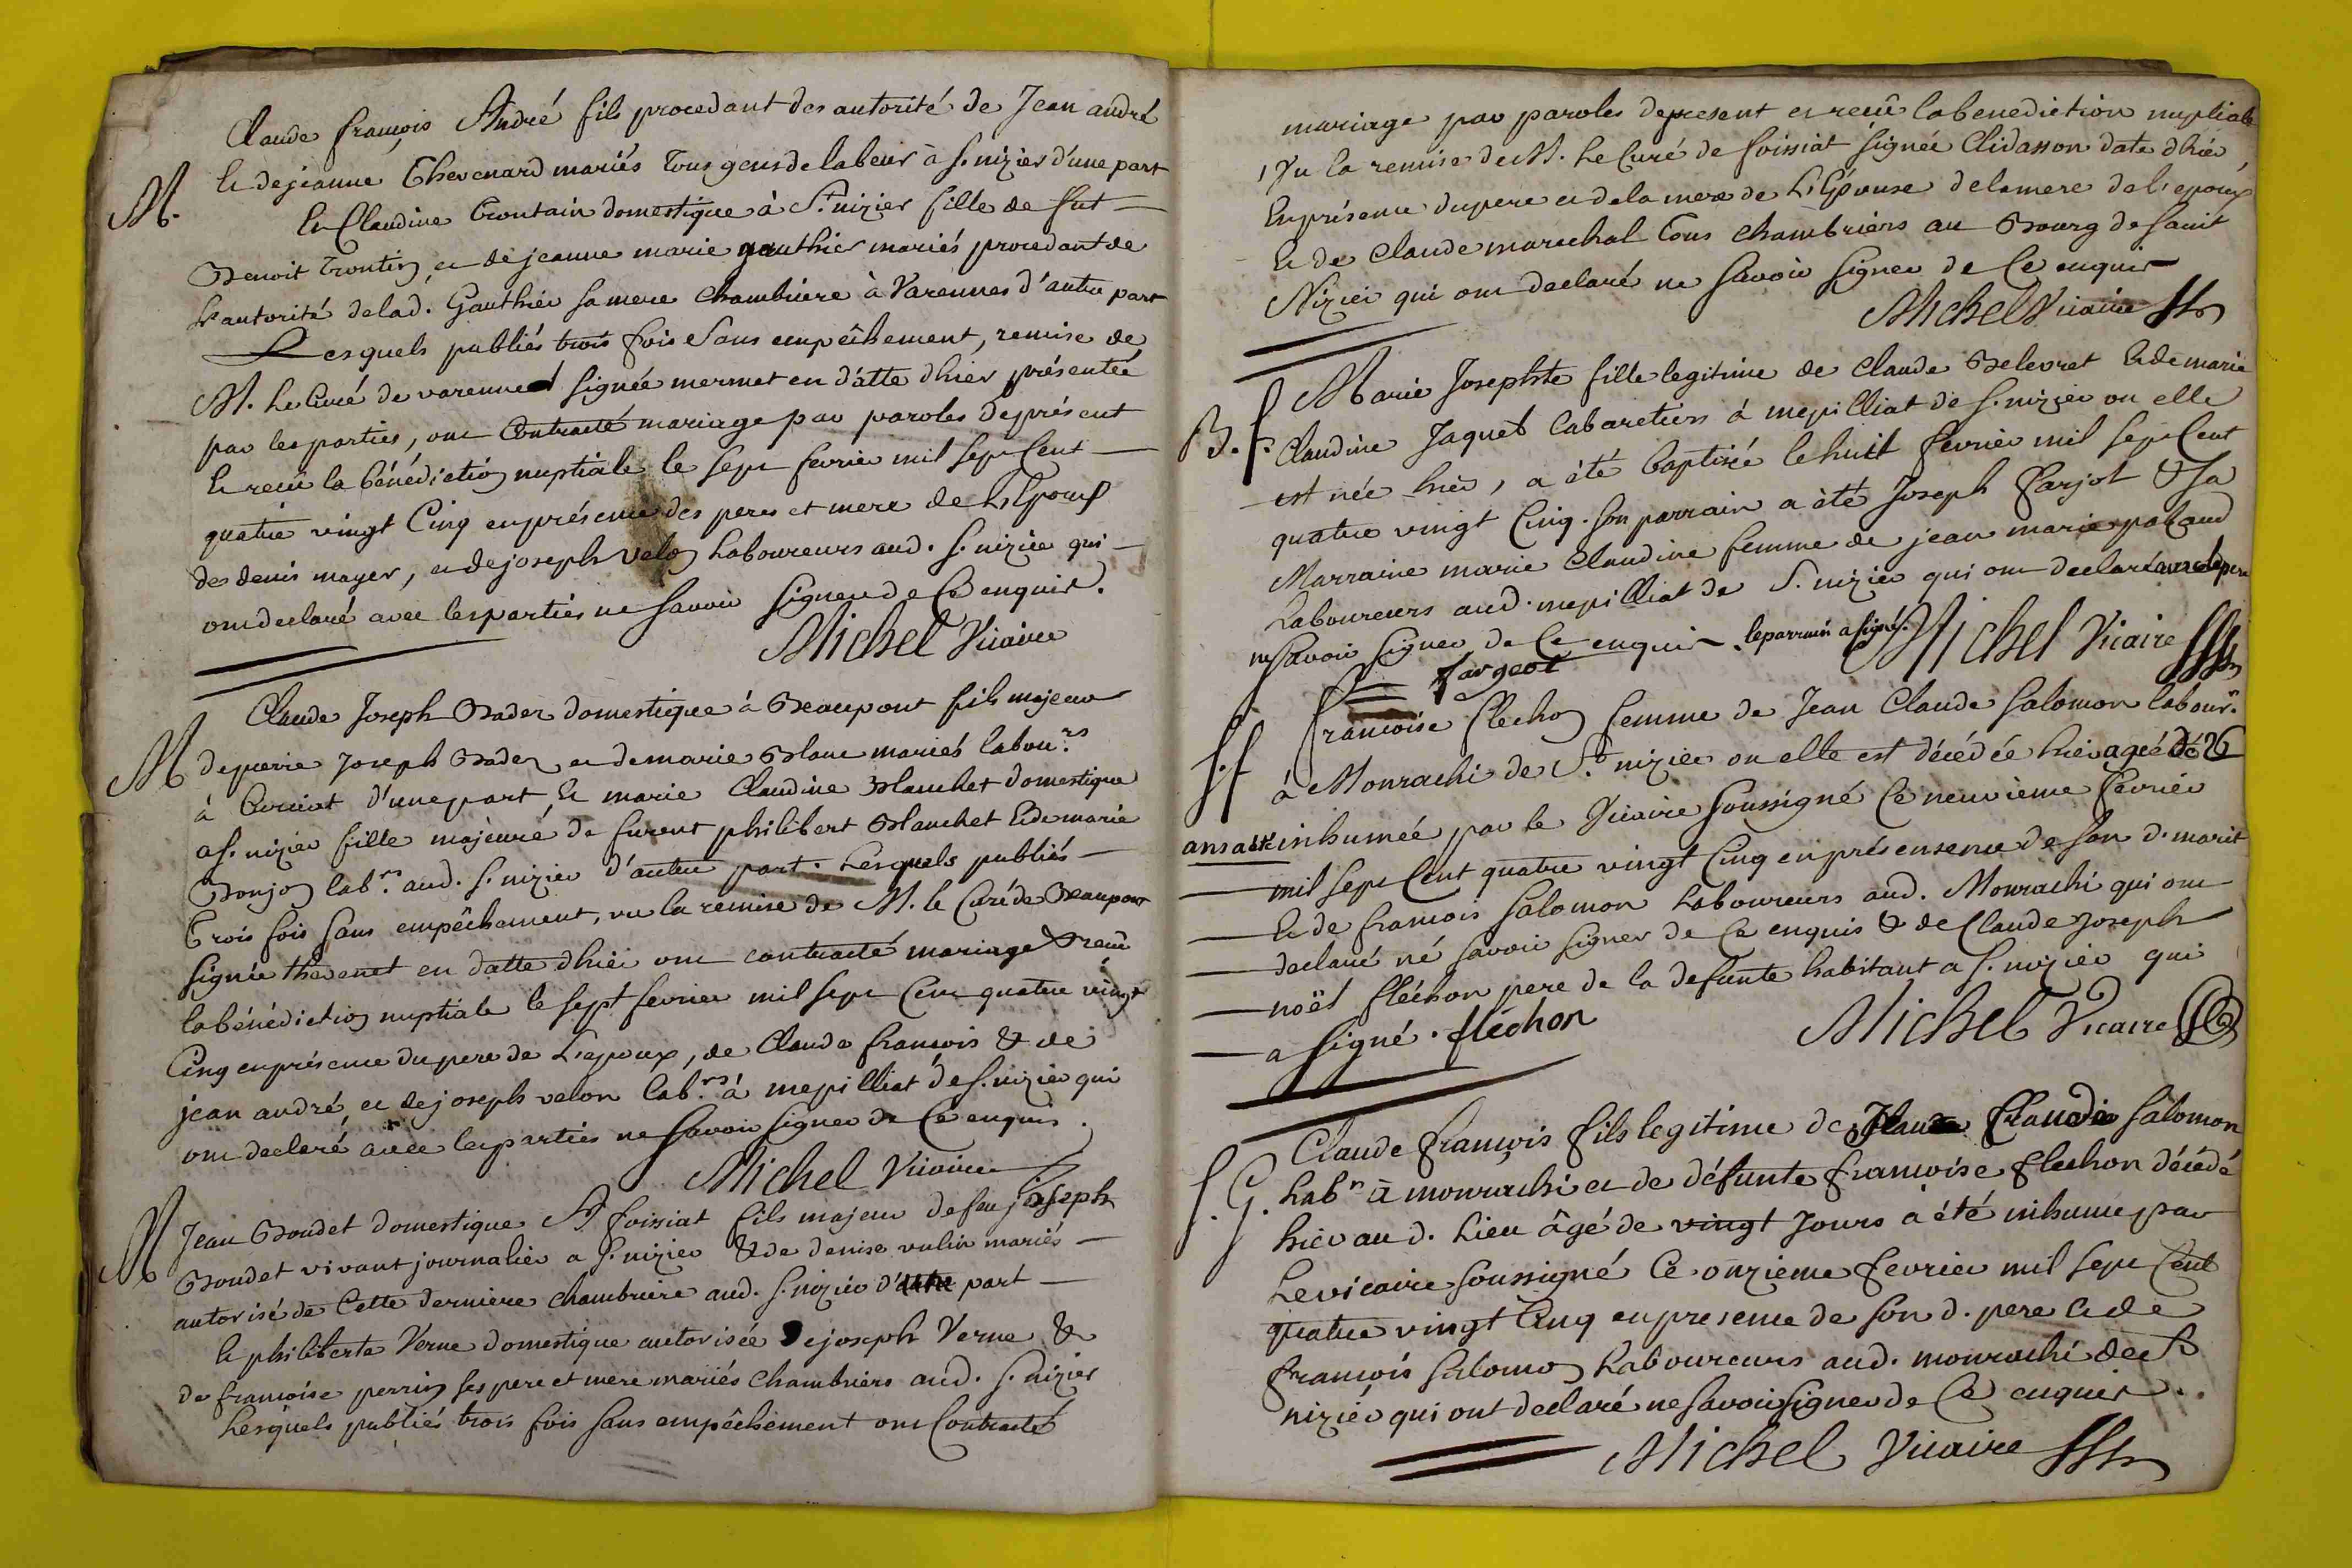 Claude françois André fils procedant des autorité de Jean andré
M.
& de jeanne Chevenard mariés tous gens de labeur à S. nizier d'une part
Et Claudine Trontain domestique à S. nizier fille de fut
Benoit Trontin et de jeanne marie gauthier mariés procedant de
l'autorité de lad. Gauthier sa mere Chambriere à Varennes d'autre part
Lesquels publiés trois fois sans empêchement, remise de
M. le Curé de varennes signée mermet en d'atte d'hier présentée
par les parties, ont Contracté mariage par paroles de présent
& recu la bénédiction nuptiale le sept fevrier mil sept Cent
quatre vingt Cinq en présence des peres et mere de L'Epoux
de denis mayer, et de joseph velon Laboureurs aud. S. nizier qui
ont declaré avec les parties ne savoir signer de Ce enquis.
Michel Vicaire
Claude Joseph Bader domestique à Beaupont fils majeur
M
de pierre Joseph Bader et de marie Blanc mariés labou.rs
à Cormoz d'une part, & marie Claudine Blanchet domestique
a S. nizier fille majeure de furent philibert Blanchet & de marie
Bonjon lab.rs aud. S. nizier d'autre part. Lesquels publiés
Trois fois sans empêchement, vu la remise de M. le Curé de Beaupont
signée thevenet en datte d'hier ont contracté mariage & recu
la bénédiction nuptiale le sept fevrier mil sept Cent quatre vingt
Cinq en présence du pere de L'epoux, de Claude francois & de
jean andré, et de joseph velon lab.rs à mepilliat de S. nizier qui
ont declaré avec les parties ne savoir signer de Ce enquis.
Michel Vicaire
M
Jean Boudet domestique A foissiat fils majeur de feu joseph
Boudet vivant journalier a S. nizier & de denise vulin mariés
autorisé de Cette derniere chambriere aud. S. nizier d'une part
& philiberte Verne domestique autorisée de joseph Verne &
de francoise perrin ses pere et mere mariés chambriers aud. S. nizier
Lesquels publiés trois fois sans empêchement ont Contracté
mariage par paroles de present et recû la benediction nuptiale
, Vu la remise de M. le Curé de foissiat signée Clidasson date d'hier,
En présence du pere et de la mere de L'Epouse de la mere de l'epoux
& de Claude marechal tous chambriers au Bourg de saint
Nizier qui ont declaré ne savoir signer de Ce enquis
Michel Vicaire
Marie Josephte fille legitime de Claude Belevret & de marie
B. f.
Claudine Jaquet Cabaretiers à mepilliat de S. nizier ou elle
est née hier, a été baptisée le huit fevrier mil sept Cent
quatre vingt Cinq. son parrain a été Joseph farjot & sa
Marraine marie Claudine femme de jean marie pobaud
Laboureurs aud. mepilliat de S. nizier qui ont declaré avec le pere
ne savoir signer de Ce enquis. le parrain a signé.
Michel Vicaire
fargeot
francoise flechon femme de Jean Claude Salomon labour.r
S. f
à Monrachi de S.t nizier ou elle est décédée hier agée de 26
ans a été inhumée par le Vicaire soussigné Ce neuvième fevrier
mil sept Cent quatre vingt Cinq en présensence de son d. marit
& de francois Salomon Laboureurs aud. Monrachi qui ont
declaré né savoir signer de Ce enquis & de Claude Joseph
noël fléchon pere de la defunte habitant a S. nizier qui
a signé. fléchon
Michel Vicaire
Claude françois fils legitime de Claude Salomon
S. G.
Lab.r à monrachi et de défunte francoise flechon décédé
hier aud. Lieu âgé de vingt Jours a été inhumé par
Le vicaire soussigné Ce onzieme fevrier mil sept Cent
quatre vingt Cinq en presence de son d. pere & de
françois Salomon Laboureurs aud. monrachi de S.
nizier qui ont declaré ne savoir signer de Ce enquis.
Michel Vicaire